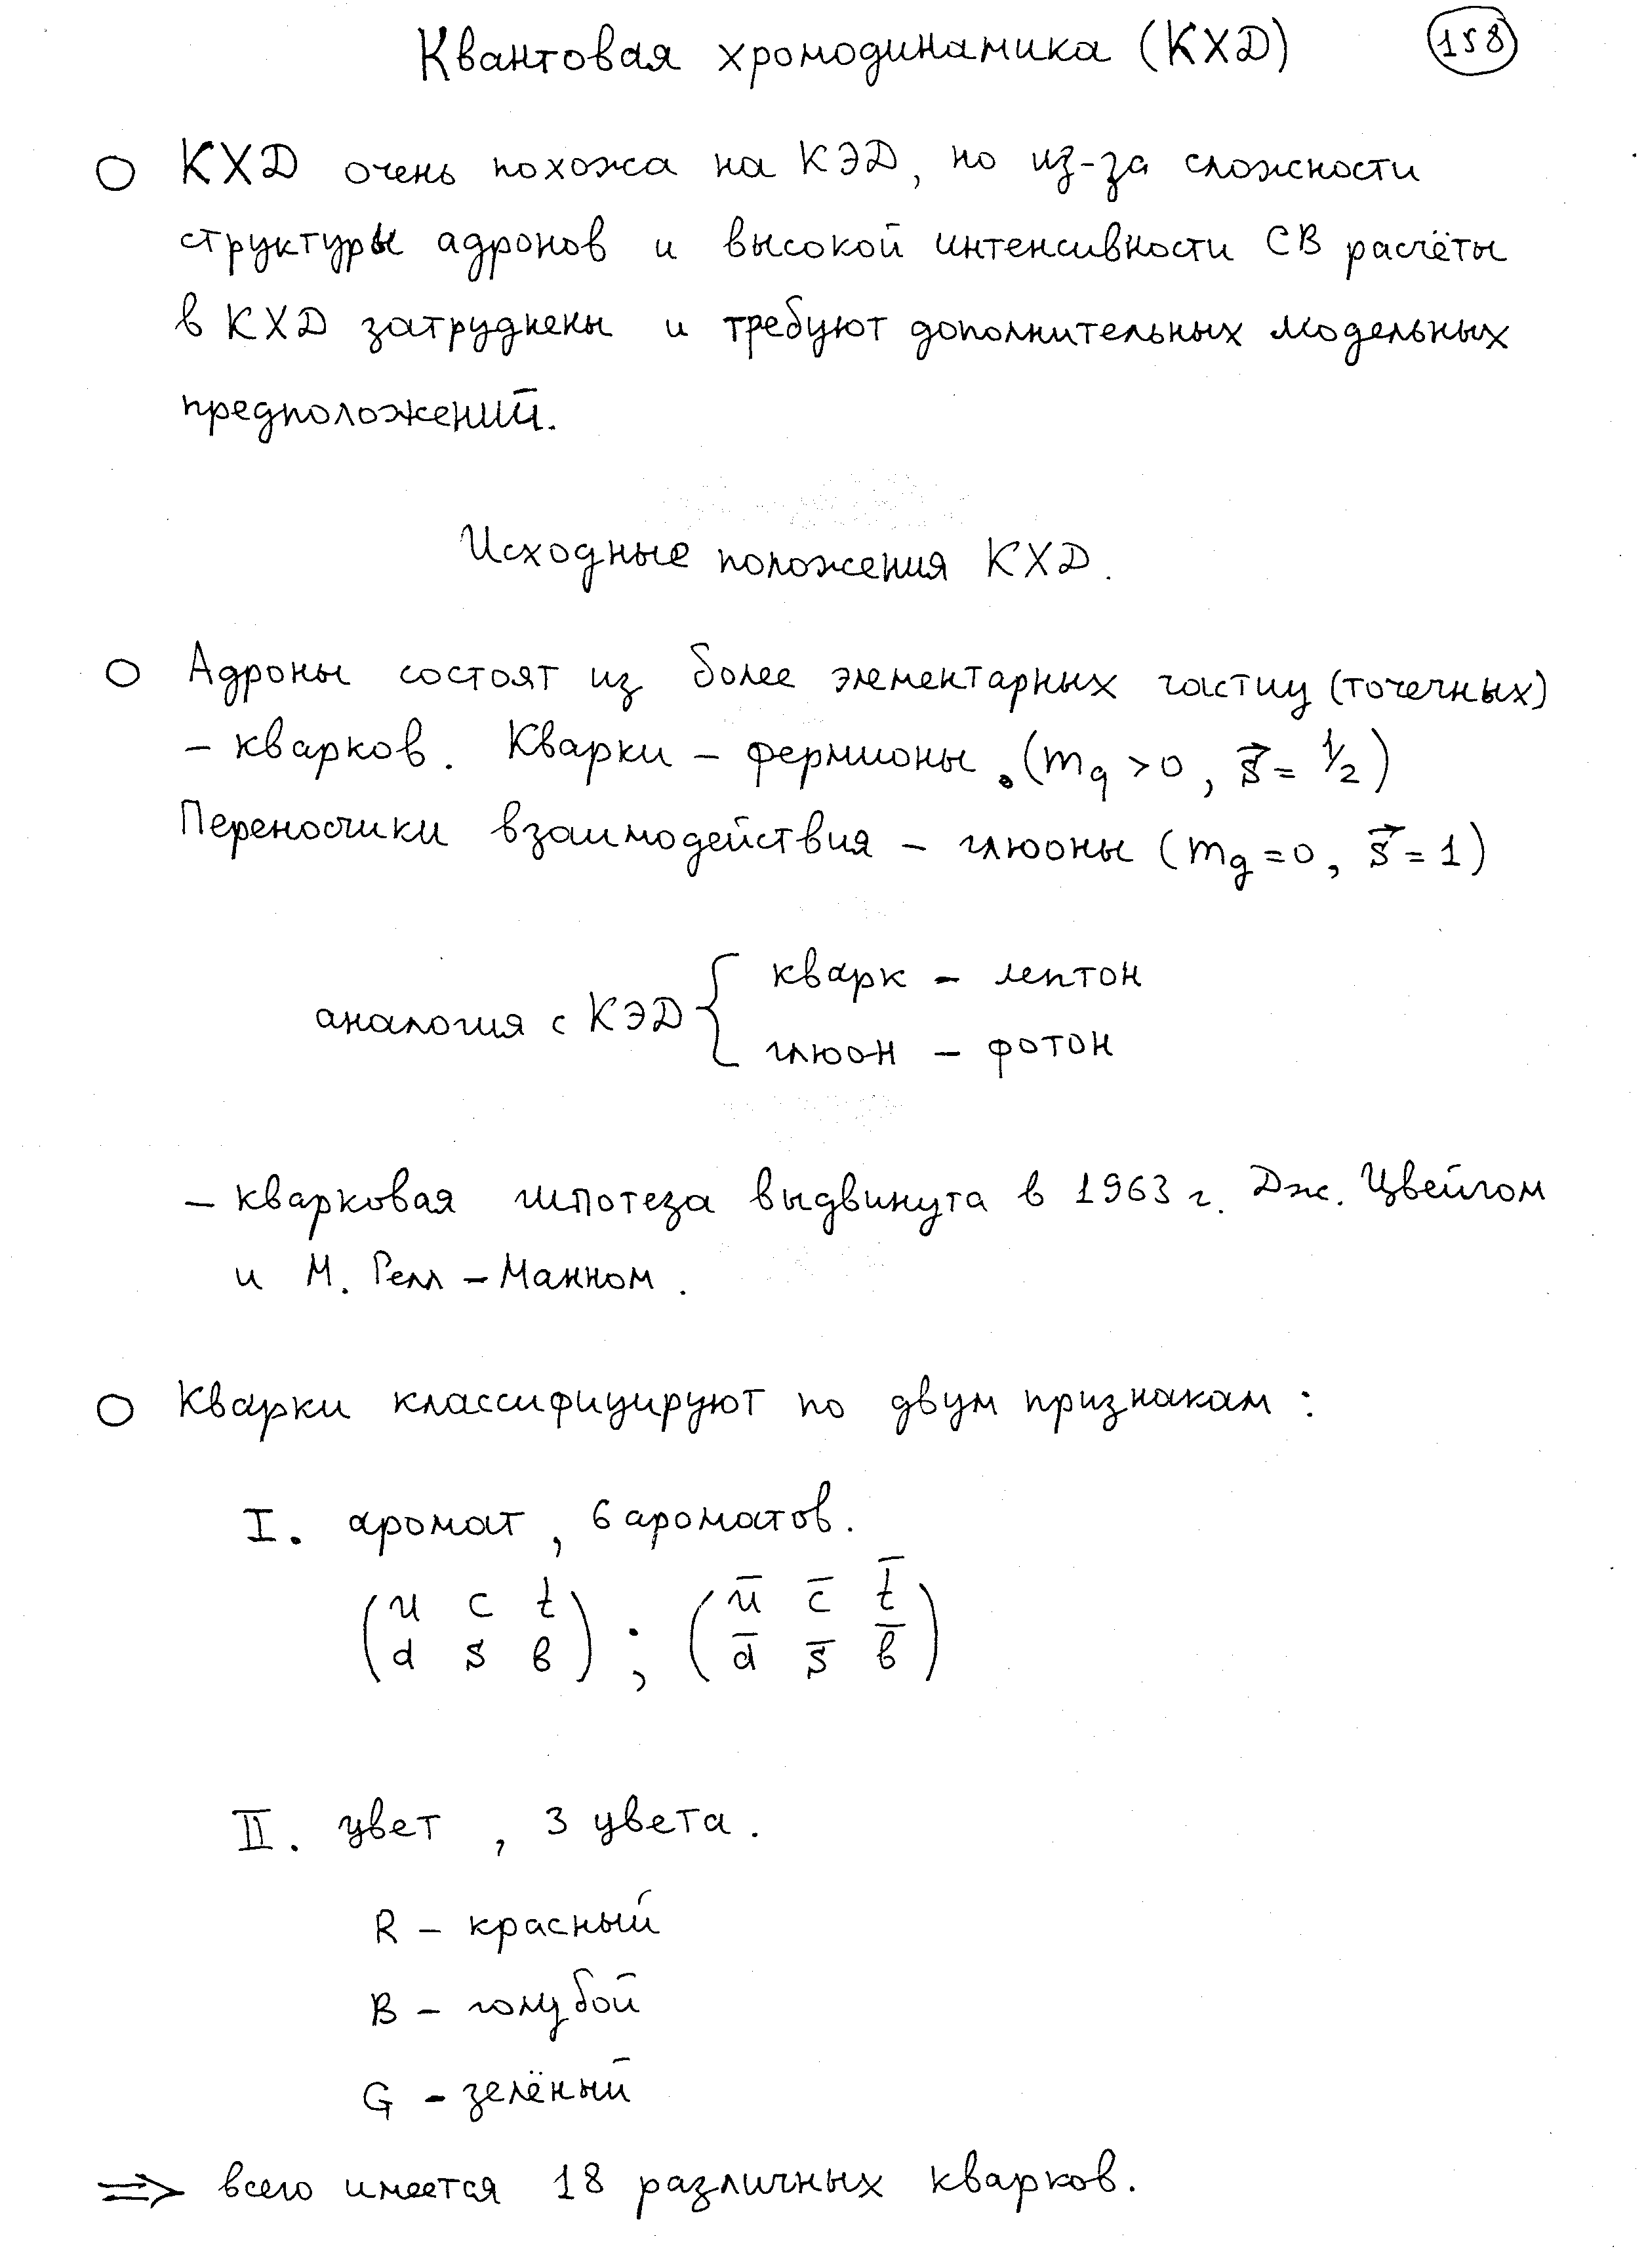 Квантовая хромодинамика (КХД) 158
○ КХД очень похожа на КЭД, но из-за сложности
структуры адронов и высокой интенсивности СВ расчёты
в КХД затруднены и требуют дополнительных модельных
предположений.
Исходные положения КХД.
○ Адроны состоят из более элементарных частиц (точечных)
– кварков. Кварки – фермионы. (m_q > 0, s⃗ = 1/2)
Переносчики взаимодействия – глюоны (m_g = 0, s⃗ = 1)
кварк – лептон
аналогия с КЭД {
глюон – фотон
– кварковая гипотеза выдвинута в 1963 г. Дж. Цвейгом
и М. Гелл – Манном.
○ Кварки классифицируют по двум признакам:
I. аромат, 6 ароматов.
(u c t) ; (ū c̄ t̄)
(d s b) ; (d̄ s̄ b̄)
II. цвет, 3 цвета.
R – красный
B – голубой
G – зелёный
⇒ всего имеется 18 различных кварков.